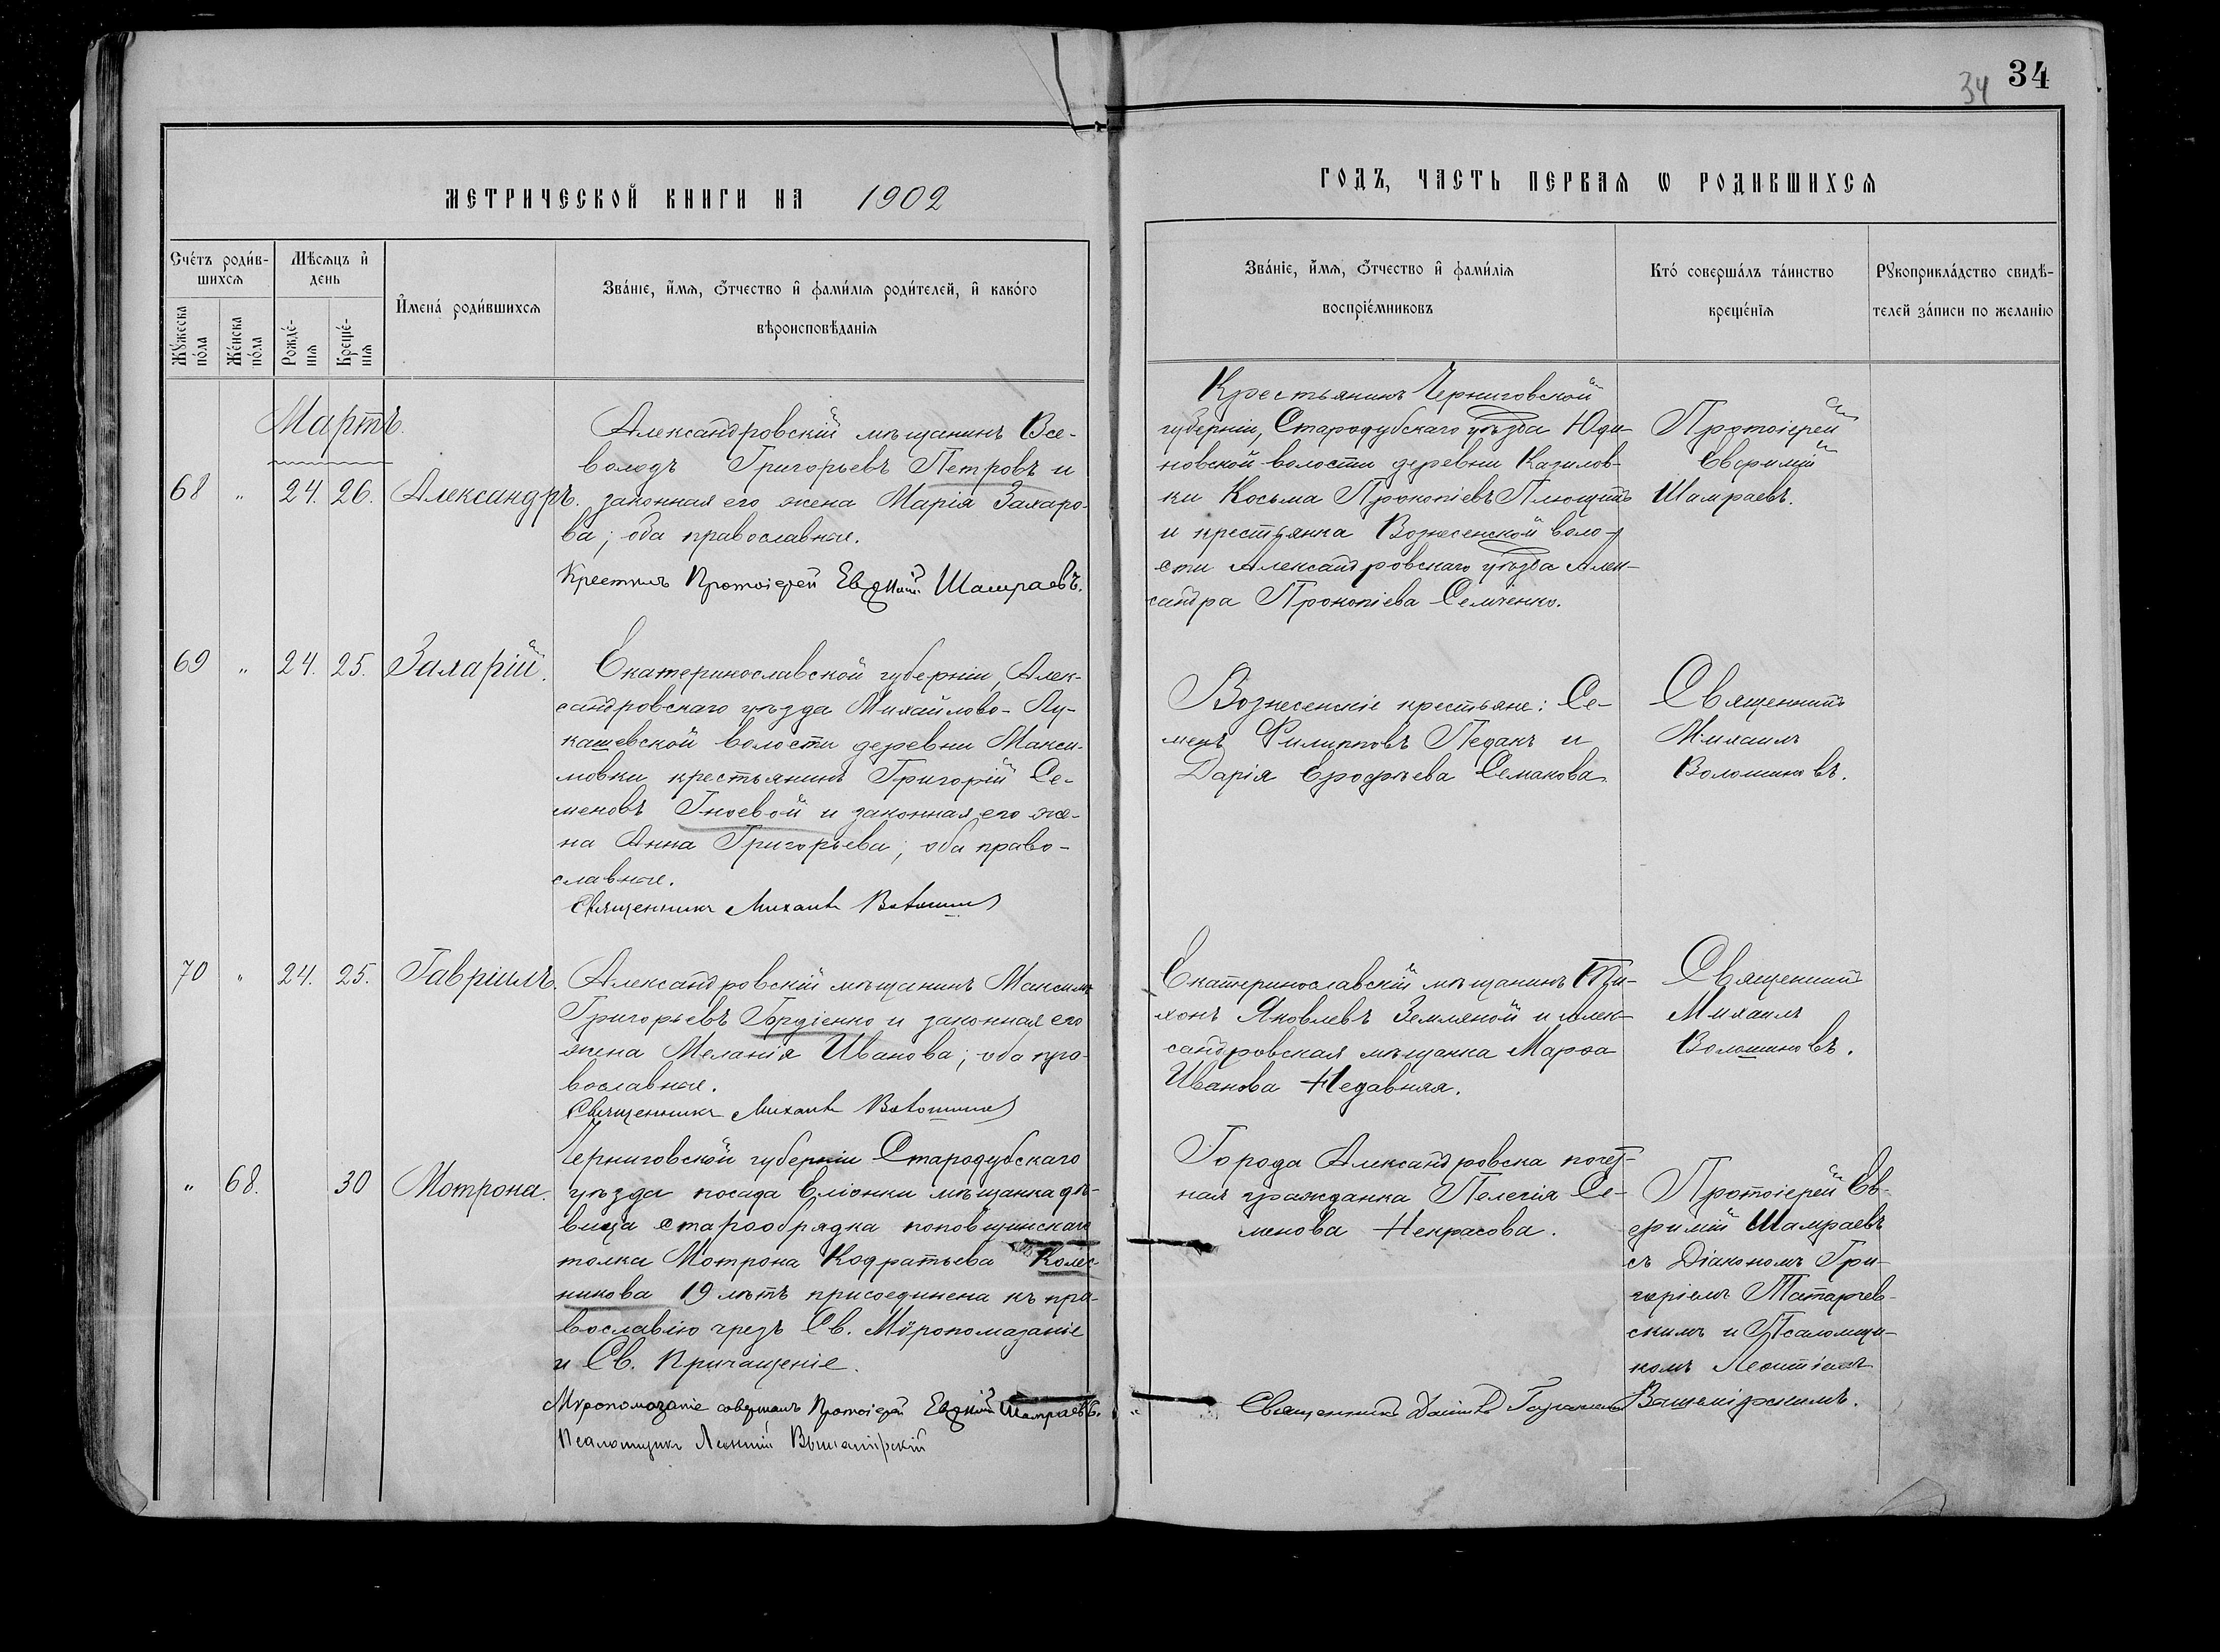 34
34
МЕТРИЧЕСКОЙ КНИГИ НА 1902
ГОДЪ, ЧАСТЬ ПЕРВАЯ Ѡ РОДИВШИХСЯ
Счетъ родив-
шихся
Мѣсяцъ и
день
Мужеска
пола
Женска
пола
Рожде-
нія
Креще-
нія
Имена родившихся
Званіе, имя, отчество и фамилія родителей, и какого
вѣроисповѣданія
Званіе, имя, отчество и фамилія
воспріемниковъ
Кто совершалъ таинство
крещенія
Рукоприкладство свидѣ-
телей записи по желанію
Мартъ.
68 " 24. 26. Александръ.
Александровскій мѣщанинъ Все-
володъ Григорьевъ Петровъ и
законная его жена Марія Захаро-
ва; оба православные.
Крестилъ Протоіерей Евѳимій Шамраевъ.
Крестьянинъ Черниговской
губерніи, Стародубскаго уѣзда Юди-
новской волости деревни Казилов-
ки Косьма Прокопіевъ Плющъ
и крестьянка Вознесенской воло-
сти Александровскаго уѣзда Алек-
сандра Прокопіева Семченко.
Протоіерей
Евѳимій
Шамраевъ.
69 " 24. 25. Захарій.
Екатеринославской губерніи, Алек-
сандровскаго уѣзда Михайлово-Лу-
кашевской волости деревни Макси-
мовки крестьянинъ Григорій Се-
меновъ Гноевой и законная его же-
на Анна Григорьева; оба право-
славные.
Священникъ Михаилъ Волошиновъ
Вознесенскіе крестьяне: Се-
менъ Филипповъ Педанъ и
Дарія Ерофѣева Семанова.
Священникъ
Михаилъ
Волошиновъ.
70 " 24. 25. Гавріилъ.
Александровскій мѣщанинъ Максимъ
Григорьевъ Гордіенко и законная его
жена Меланія Иванова; оба пра-
вославные.
Священникъ Михаилъ Волошиновъ
Екатеринославскій мѣщанинъ Ти-
хонъ Яковлевъ Земляной и Алек-
сандровская мѣщанка Марѳа
Иванова Недавняя.
Священникъ
Михаилъ
Волошиновъ.
" 68. 30 Мотрона.
Черниговской губерніи Стародубскаго
уѣзда посада Еліонки мѣщанка дѣ-
вица старообрядка поповщинскаго
толка Мотрона Кодратьева Колес-
никова 19 лѣтъ присоединена къ пра-
вославію чрезъ Св. Мѵропомазаніе
и Св. Причащеніе.
Мѵропомазаніе совершалъ Протоіерей Евѳимій Шамраевъ.
Псаломщикъ Леонтій
Города Александровска почет-
ная гражданка Пелагія Се-
менова Некрасова.
Священникъ
Протоіерей Ев-
ѳимій Шамраевъ
съ Діакономъ Гри-
горіемъ Татарчев-
скимъ и Псаломщи-
комъ Леонтіемъ